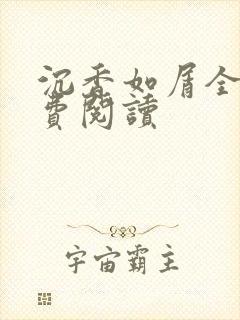 沉香如屑全
費閱讀
宇宙霸主